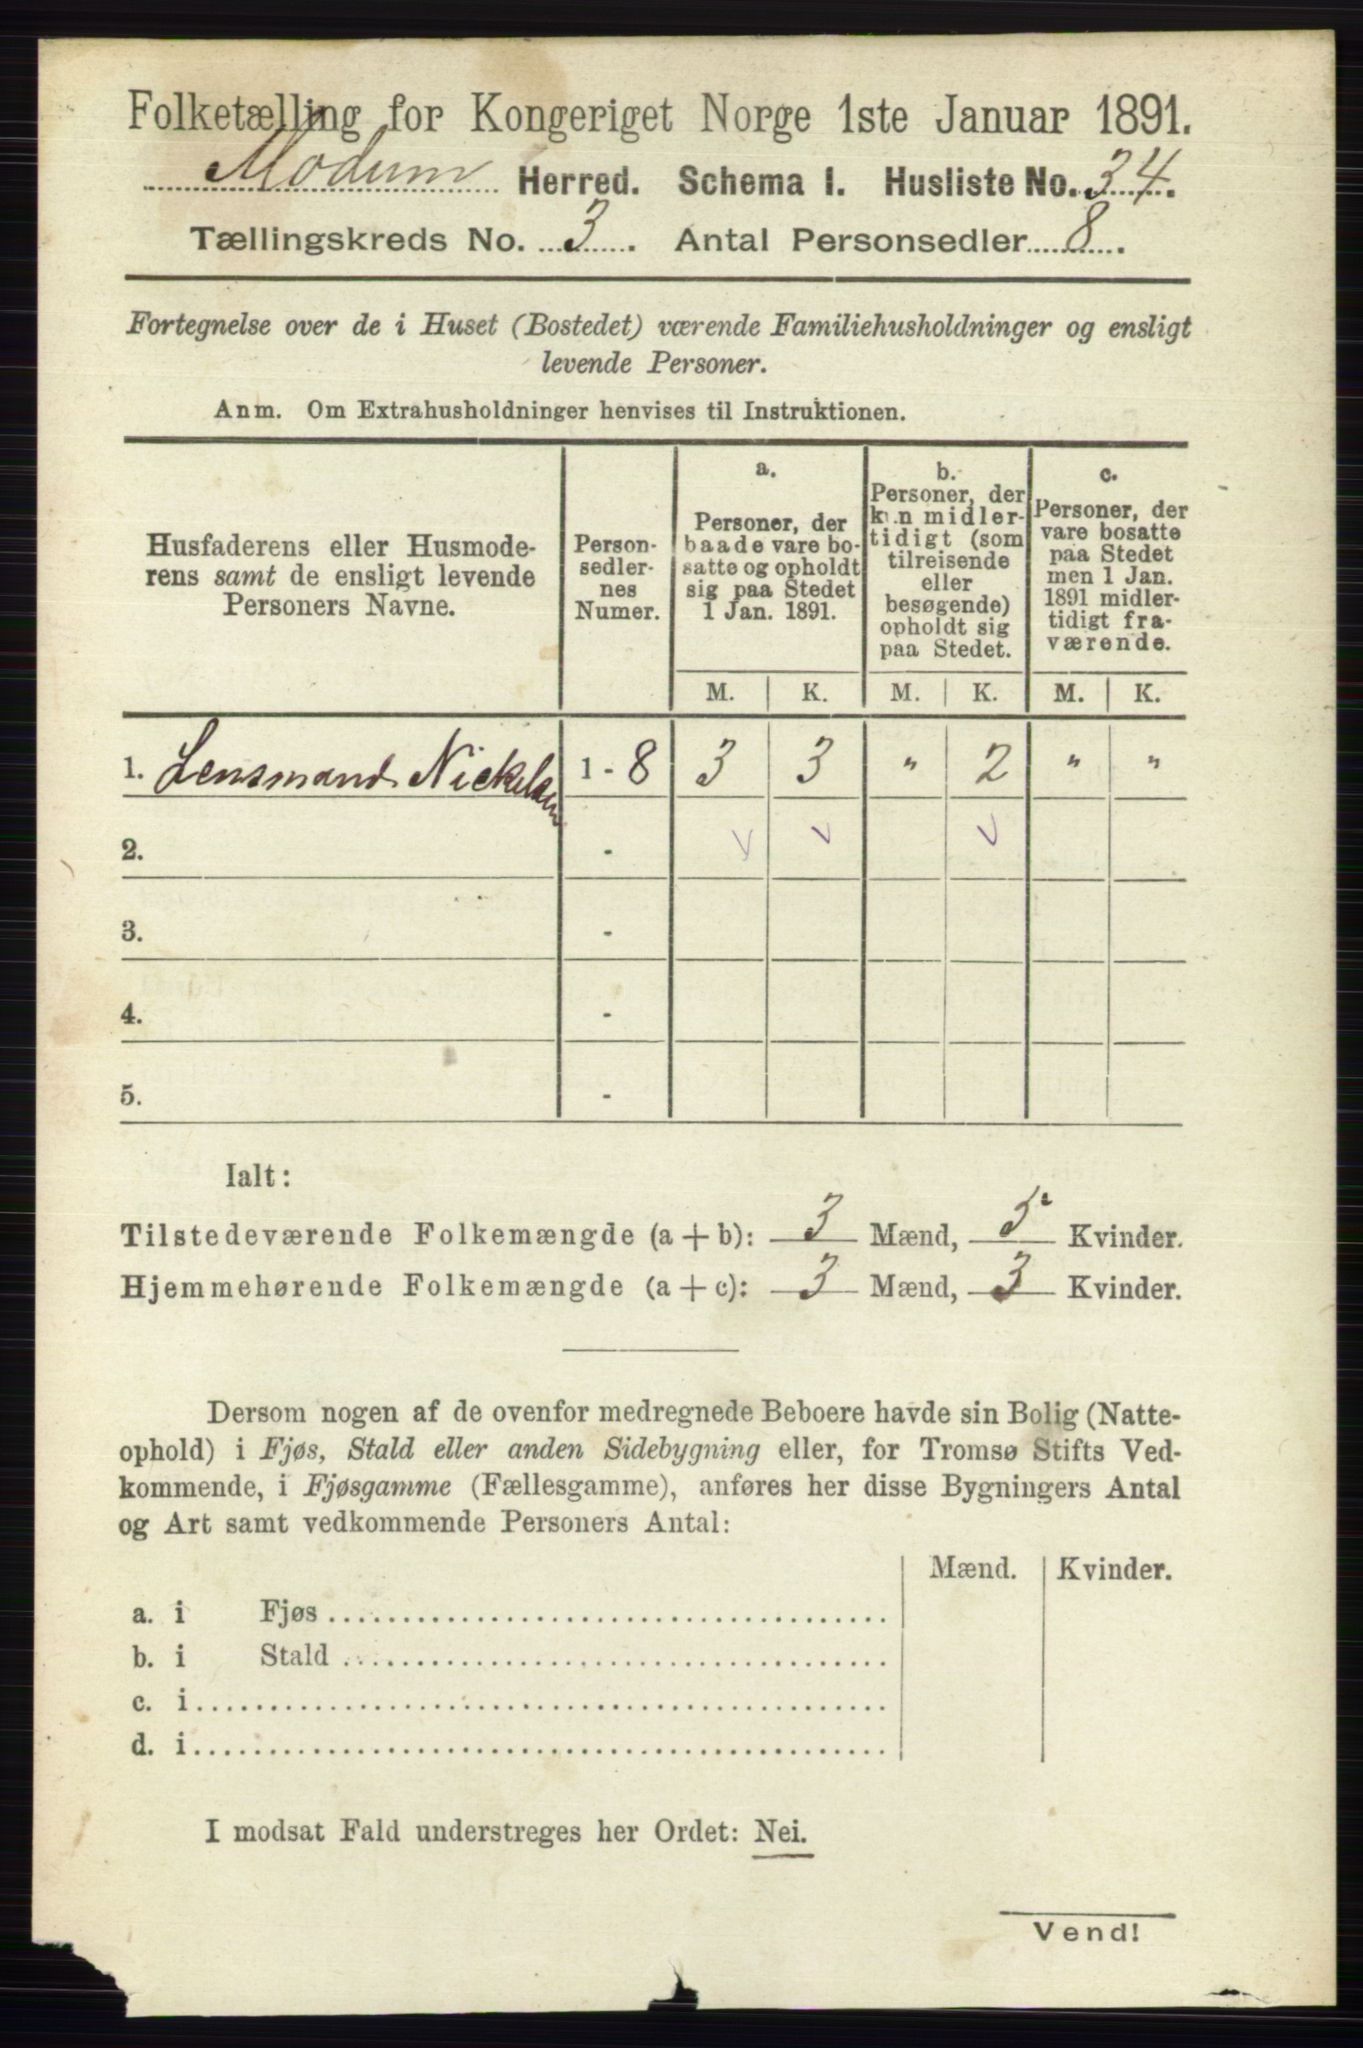 Folketælling for Kongeriget Norge 1ste Januar 1891.
Modum Herred. Schema I. Husliste No. 34.
Tællingskreds No. 3. Antal Personsedler 8.
Fortegnelse over de i Huset (Bostedet) værende Familiehusholdninger og ensligt
levende Personer.
Anm. Om Extrahusholdninger henvises til Instruktionen.
Husfaderens eller Husmode-
rens samt de ensligt levende
Personers Navne.
Person-
sedler-
nes
Numer.
a.
Personer, der
baade vare bo-
satte og opholdt
sig paa Stedet
1 Jan. 1891.
b.
Personer, der
kun midler-
tidigt (som
tilreisende
eller
besøgende)
opholdt sig
paa Stedet.
c.
Personer, der
vare bosatte
paa Stedet
men 1 Jan.
1891 midler-
tidigt fra-
værende.
M. K. M. K. M. K.
1. Lensmand Nickelsen 1 - 8 3 3 " 2 " "
2. - v v v
3. -
4. -
5. -
Ialt:
Tilstedeværende Folkemængde (a + b): 3 Mænd, 5 Kvinder.
Hjemmehørende Folkemængde (a + c): 3 Mænd, 3 Kvinder.
Dersom nogen af de ovenfor medregnede Beboere havde sin Bolig (Natte-
ophold) i Fjøs, Stald eller anden Sidebygning eller, for Tromsø Stifts Ved-
kommende, i Fjøsgamme (Fællesgamme), anføres her disse Bygningers Antal
og Art samt vedkommende Personers Antal:
Mænd. Kvinder.
a. i Fjøs
b. i Stald
c. i
d. i
I modsat Fald understreges her Ordet: Nei.
Vend!